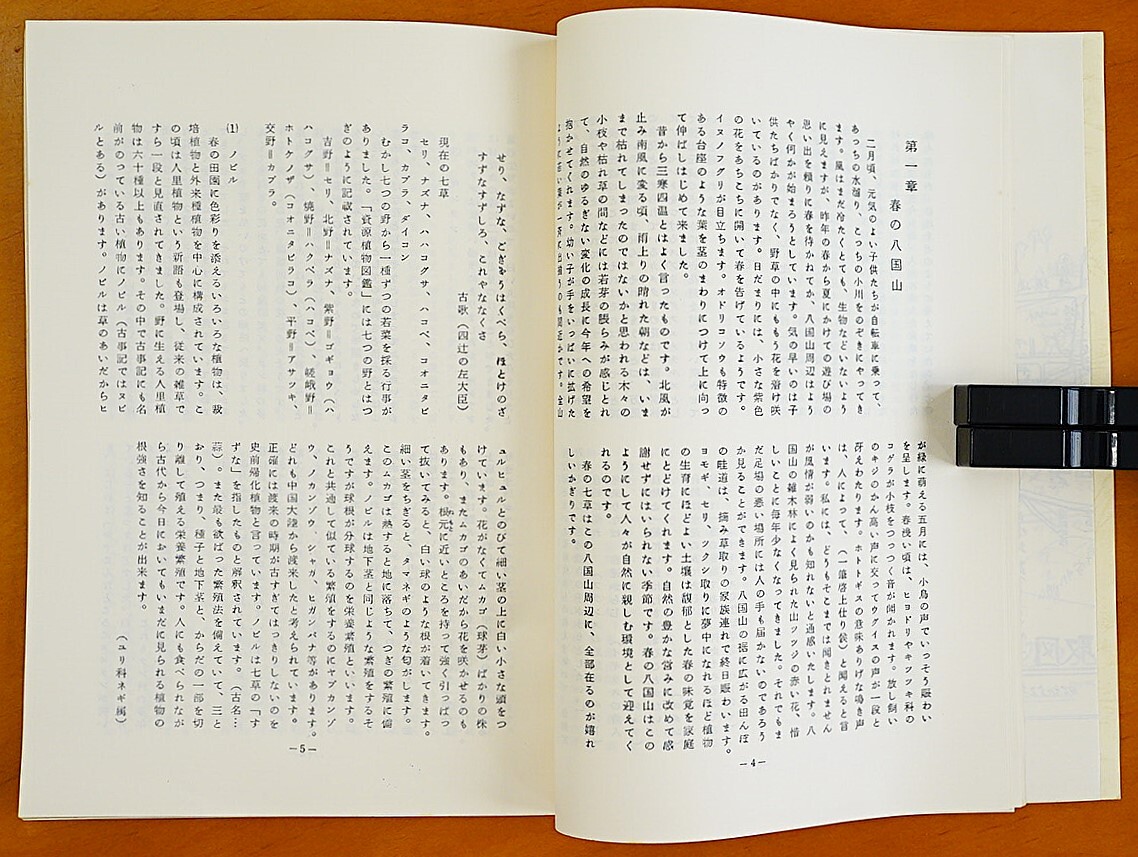 第一章　春の八国山
二月頃、元気のよい子供たちが自転車に乗って、
あっちの水溜り、こっちの小川をのぞきにやってき
ます。風はまだ冷たくとても、生物などいないよう
に見えますが、昨年の春から夏にかけての遊び場の
思い出を頼りに春を待かねてか、八国山周辺はよう
やく何かが始まろうとしています。気の早いのは子
供たちばかりでなく、野草の中にももう花を着け咲
いているのがあります。日だまりには、小さな紫色
の花をあちこちに開いて春を告げているようです。
イヌノフグリが目立ちます。オドリコソウも特徴の
ある台座のような葉を茎のまわりにつけて上に向っ
て伸ばしはじめて来ました。
昔から三寒四温とはよく言ったものです。北風が
止み南風に変る頃、雨上りの晴れた朝などは、いま
まで枯れてしまったのではないかと思われる木々の
小枝や枯れ草の間などには若芽の脹らみが感じとれ
て、自然のゆるぎない変化の成長に今年への希望を
抱かせてくれます。幼い子が手をいっぱいに拡げた
が緑に萌える五月には、小鳥の声でいっそう賑わい
を呈します。春浅い頃は、ヒヨドリやキツツキ科の
コゲラが小枝をつつつく音が聞かれます。放し飼い
のキジのかん高い声に交ってウグイスの声が一段と
冴えわたります。ホトトギスの意味ありげな鳴き声
は、人によって、（一筆啓上仕り候）と聞えると言
います。私には、どうもそこまでは聞きとれません
が風情が弱いのかも知れないと通感いたします。八
国山の雑木林によく見られた山ツツジの赤い花、惜
しいことに毎年少なくなってきました。それでもま
だ足場の悪い場所には人の手も届かないのであろう
か見ることができます。八国山の裾に広がる田んぼ
の畦道は、摘み草取りの家族連れで終日賑わいます。
ヨモギ、セリ、ツクシ取りに夢中になれるほど植物
の生育にほどよい土壌は馥郁とした春の味覚を家庭
にとどけてくれます。自然の豊かな営みに改めて感
謝せずにはいられない季節です。春の八国山はこの
ようにして人々が自然に親しむ環境として迎えてく
れるのです。
春の七草はこの八国山周辺に、全部在るのが嬉れ
しいかぎりです。
―4―
せり、なずな、ごぎょうはくべら、ほとけのざ
すずなすずしろ、これやななくさ
古歌（四辻の左大臣）
現在の七草
セリ、ナズナ、ハハコグサ、ハコベ、コオニタビ
ラコ、カブラ、ダイコン
むかし七つの野から一種ずつの若菜を採る行事が
ありました。「資源植物図鑑」には七つの野とはつ
ぎのように記載されています。
吉野＝セリ、北野＝ナズナ、紫野＝ゴギョウ（ハ
ハコグサ）、嬈野＝ハクベラ（ハコベ）、嵯峨野＝
ホトケノザ（コオニタビラコ）、平野＝アサツキ、
交野＝カブラ。
(1)　ノビル
春の田園に色彩りを添えるいろいろな植物は、栽
培植物と外来種植物を中心に構成されています。こ
の頃は人里植物という新語も登場し、従来の雑草で
すら一段と見直されてきました。野に生える人里植
物は六十種以上もあります。その中で古事記にも名
前がのっている古い植物にノビル（古事記ではヌビ
ルとある）があります。ノビルは草のあいだからヒ
ュルヒュルとのびて細い茎の上に白い小さな頭をつ
けています。花がなくてムカゴ（球芽）ばかりの株
もあり、またムカゴのあいだから花を咲かせるのも
あります。根元に近いところを持って強く引っぱっ
て抜いてみると、白い球のような根が着いてきます。
細い茎をちぎると、タマネギのような匂がします。
このムカゴは熟すると地に落ちて、つぎの繁殖に備
えます。ノビルは地下茎と同じような繁殖をするそ
うですが球根が分球するのを栄養繁殖といいます。
これと共通して似ている繁殖をするのにヤブカンゾ
ウ、ノカンゾウ、シャガ、ヒガンバナ等があります。
どれも中国大陸から渡来したと考えられています。
正確には渡来の時期が古すぎてはっきりしないのを
史前帰化植物と言っています。ノビルは七草の「す
ずな」を指したものと解釈されています。（古名…
蒜）。また最も欲ばった繁殖法を備えていて、三と
おり、つまり、種子と地下茎と、からだの一部を切
り離して殖える栄養繁殖です。人にも食べられなが
ら古代から今日においてもいまだに見られる植物の
根強さを知ることが出来ます。
（ユリ科ネギ属）
―5―